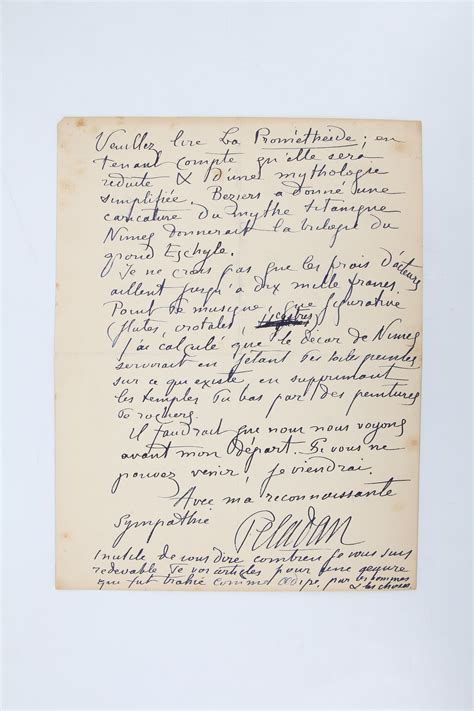 Veuillez lire La Prométhéide ; en
tenant compte qu'elle sera
réduite & d'une mythologie
simplifiée. Beziers a donné une
caricature du mythe titanique
Nimes donnerait la trilogie du
grand Eschyle.
Je ne crois pas que les frais d'acteurs
aillent jusqu'à dix mille francs.
Point de musique, que figurative
flutes, crotales,
J'ai calculé que le décor de Nimes
servirait en jetant des toiles peintes
sur ce qui existe, en supprimant
les temples du bas par des peintures
de rochers.
Il faudrait que nous nous voyons
avant mon départ. Si vous ne
pouvez venir, je viendrai.
Avec ma reconnaissante
Sympathie
Peladan
Inutile de vous dire combien je vous suis
redevable de vos articles pour une œuvre
qui fut trahie comme Œdipe, par les hommes
& les choses.